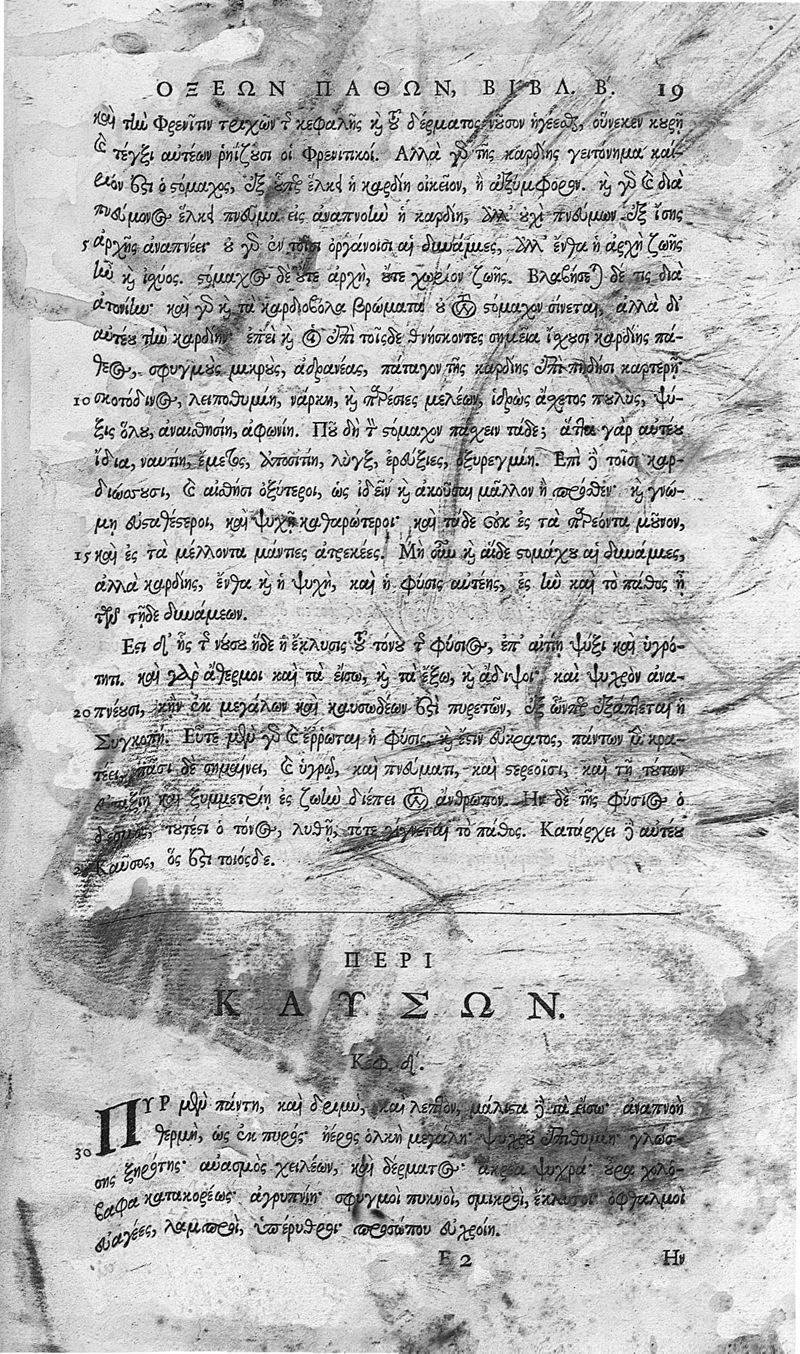 ΟΞΕΩΝ ΠΑΘΩΝ, ΒΙΒΛ. Β. 19
καὶ τὴν Φρενῖτιν τριχῶν τῆς κεφαλῆς καὶ τοῦ δέρματος νοῦσον ἡγέεσθαι, οὕνεκεν κουρῇ
καὶ τέγξι αὐτέων ῥηΐζουσι οἱ Φρενιτικοί. Ἀλλὰ γὰρ τῆς καρδίης γειτόνημα καί-
ριόν ἐστι ὁ στόμαχος, ἐξ οὗπερ ἕλκει ἡ καρδίη οἰκεῖον, ἢ ἀξύμφορον. καὶ γὰρ καὶ διὰ
πνεύμονος ἕλκει πνεῦμα εἰς ἀναπνοὴν ἡ καρδίη, ἀλλ' οὐχὶ πνεύμων ἐξ ἴσης
5 ἀρχῆς ἀναπνέει· οὐ γὰρ ἐν τοῖσι ὀργάνοισι αἱ δυνάμιες, ἀλλ' ἔνθα ἡ ἀρχὴ ζωῆς
ἠν καὶ ἰσχύος. στόμαχος δὲ οὔτε ἀρχὴ, οὔτε χωρίον ζωῆς. Βλαβήσεται δέ τις διὰ
ἀτονίην· καὶ γὰρ καὶ τὰ καρδιοβόλα βρώματα οὐ τὸν στόμαχον σίνεται, ἀλλὰ δι'
αὐτέου τὴν καρδίην· ἐπεὶ καὶ οἱ ἐπὶ τοῖσδε θνήσκοντες σημεῖα ἴσχουσι καρδίης πά-
θεος, σφυγμοὺς μικροὺς, ἀδρανέας, πάταγον τῆς καρδίης ἐπὶ πηδήσι καρτερῇ·
10 σκοτόδινος, λειποθυμίη, νάρκη, καὶ παρέσιες μελέων, ἱδρὼς ἄσχετος πουλὺς, ψύ-
ξις ὅλου, ἀναισθησίη, ἀφωνίη. Ποῦ δὴ τὸν στόμαχον πάσχειν τάδε; ἅττα γὰρ αὐτέου
ἴδια, ναυτίη, ἔμετος, ἀποσιτίη, λὺγξ, ἐρεύξιες, ὀξυρεγμίη. Ἐπὶ δὲ τοῖσι καρ-
διώσσουσι, καὶ αἰσθήσι ὀξύτεροι, ὡς ἰδεῖν καὶ ἀκοῦσαι μᾶλλον ἢ πρόσθεν· καὶ γνώ-
μῃ εὐσταθέστεροι, καὶ ψυχῇ καθαρώτεροι· καὶ τάδε οὐκ ἐς τὰ παρεόντα μοῦνον,
15 καὶ ἐς τὰ μέλλοντα μάντιες ἀτρεκέες. Μὴ οὖν καὶ αἵδε στομάχου αἱ δυνάμιες,
ἀλλὰ καρδίης, ἔνθα καὶ ἡ ψυχὴ, καὶ ἡ φύσις αὐτέης, ἐς ἣν καὶ τὸ πάθος ἢ
τῶν τῆδε δυνάμεων.
Ἔστι δ' ἧς τῆς νούσου ἥδε ἡ ἔκλυσις τοῦ τόνου τῆς φύσιος, ἐπ' αἰτίῃ ψύξι καὶ ὑγρό-
τητι. καὶ γὰρ ἄθερμοι καὶ τὰ εἴσω, καὶ τὰ ἔξω, καὶ ἄδιψοι· καὶ ψυχρὸν ἀνα-
20 πνέουσι, κἢν ἐκ μεγάλων καὶ καυσωδέων ἐστὶ πυρετῶν, ἐξ ὧνπερ ἐξάπτεται ἡ
Συγκοπή. Εὖτε μὲν γὰρ καὶ ἔῤῥωται ἡ φύσις, καὶ ἔστιν εὔκρατος, πάντων μὲν κρα-
τέει, πᾶσι δὲ σημαίνει, καὶ ὑγρῷ, καὶ πνεύματι, καὶ στερεοῖσι, καὶ τῇ τούτων
εὐταξίῃ καὶ ξυμμετρίῃ ἐς ζωὴν διέπει τὸν ἄνθρωπον. Ἢν δὲ τῆς φύσιος ὁ
δεσμὸς, τουτέστι ὁ τόνος, λυθῇ, τότε γίγνεται τὸ πάθος. Κατάρχει δὲ αὐτέου
Καῦσος, ὅς ἐστι τοιόσδε.
ΠΕΡΙ
ΚΑΥΣΩΝ.
Κεφ. δ'.
ΠΥΡ μὲν πάντη, καὶ δριμὺ, καὶ λεπτὸν, μάλιστα δὲ τὰ εἴσω· ἀναπνοὴ
30 θερμὴ, ὡς ἐκ πυρός· ἠέρος ὁλκὴ μεγάλη· ψυχροῦ ἐπιθυμίη· γλώσ-
σης ξηρότης· αὐασμὸς χειλέων, καὶ δέρματος· ἄκρεα ψυχρά· οὖρα χολό-
βαφα κατακορέως· ἀγρυπνίη· σφυγμοὶ πυκνοὶ, σμικροὶ, ἔκλυτοι· ὀφθαλμοὶ
εὐαγέες, λαμπροὶ, ὑπέρυθροι· προσώπου εὐχροίη.
E 2 Ἢν